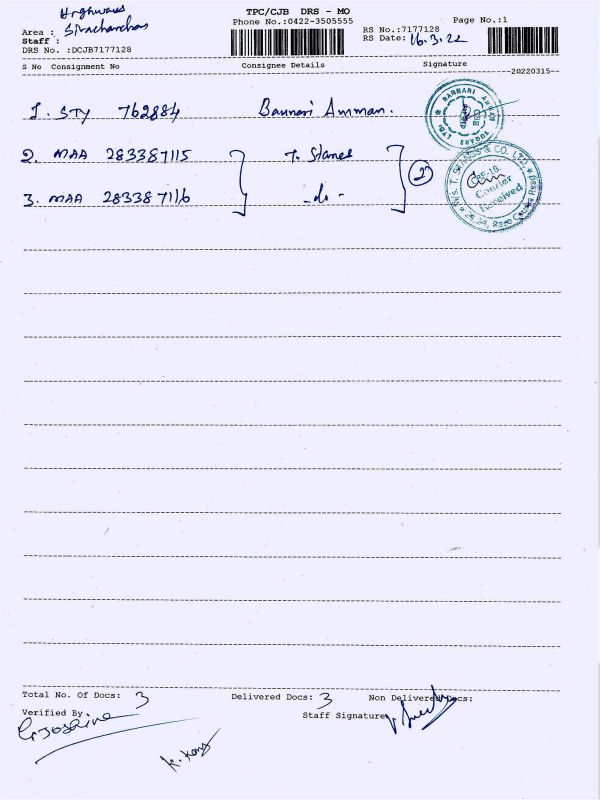 Highways
TPC/CJB DRS - MO
Phone No.:0422-3505555
Page No.:1
Area :
RS No.:7177128
Staff :
RS Date: 16.3.22
DRS No. :DCJB7177128
S No Consignment No Consignee Details Signature
20220315
1. STY 762884 Bannari Amman.
BANNARI AMMAN SUGARS LTD
2. MAA 283387115 T. Stanes
3. MAA 283387116 -do- 2
T. STANES & CO. LTD.
Courier
Received
Race Course Road
Total No. Of Docs: 3 Delivered Docs: 3 Non Delivered Docs:
Verified By
Staff Signature